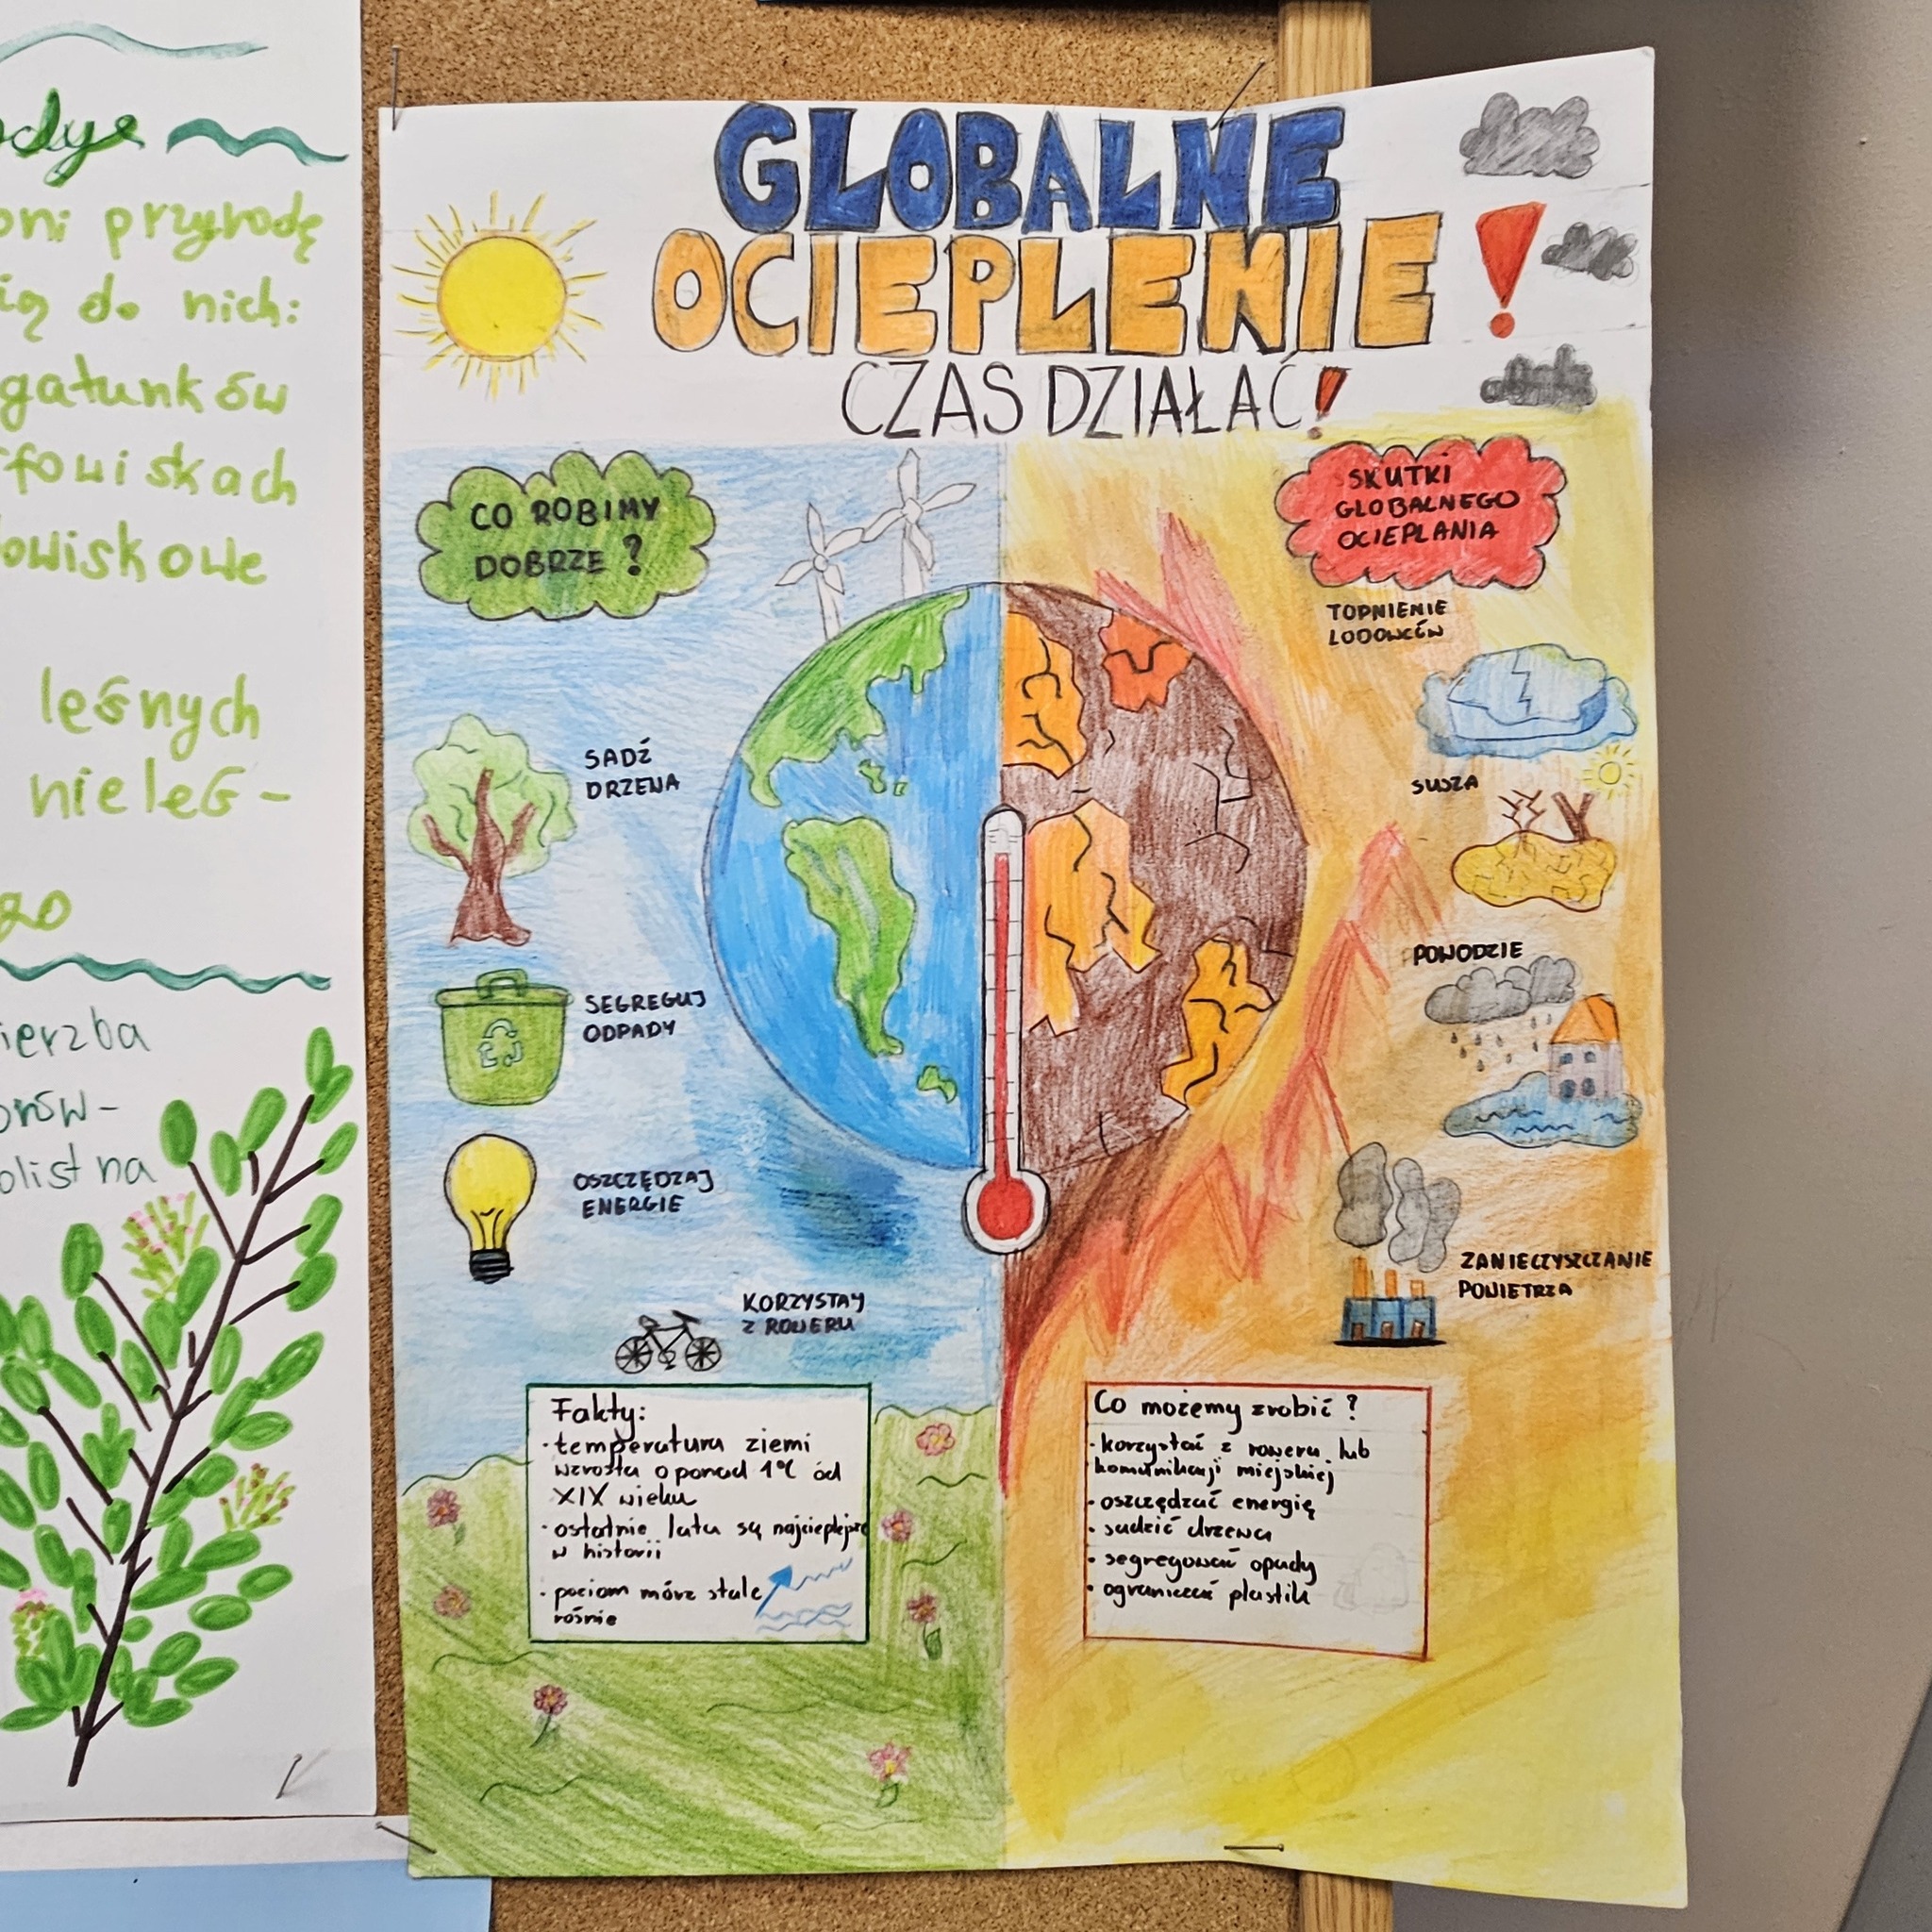 przyrodę
do nich:
gatunków
leśnych
GLOBALNE
OCIEPLENIE!
CZAS DZIAŁAĆ!
CO ROBIMY
DOBRZE?
SADŹ
DRZEWA
SEGREGUJ
ODPADY
OSZCZĘDZAJ
ENERGIE
KORZYSTAJ
Z ROWERU
Fakty:
·temperatura ziemi
wzrosła o ponad 1°C od
XIX wieku
·ostatnie lata są najcieplejsze
w historii
·poziom mórz stale
rośnie
SKUTKI
GLOBALNEGO
OCIEPLANIA
TOPNIENIE
LODOWCÓW
SUSZA
POWODZIE
ZANIECZYSZCZANIE
POWIETRZA
Co możemy zrobić?
·korzystać z roweru lub
komunikacji miejskiej
·oszczędzać energię
·sadzić drzewa
·segregować opady
·ograniczać plastik